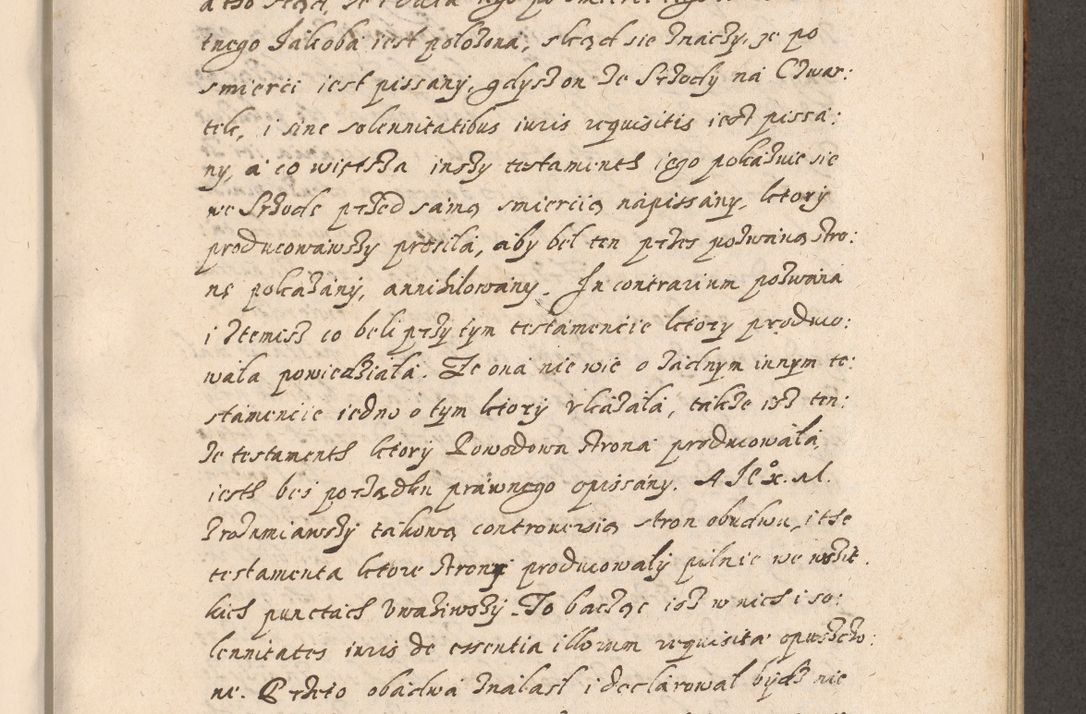 tnego Jakoba iest połozona, skąd sie znaczy, ze po
smierci iest pissany, gdyszon ze Szrody na Czwar:
tek, i sine solennitatibus iuris requisitis iest pissa:
ny, a co więtsza inszy testamenth iego pokazuie sie
we Szrode przed samą smiercią napissany, ktory
producowawszy prosiła, aby beł ten przes pozwaną stro:
nę pokazany, annihilowany. In contrarium pozwana
i Itemisz co beli przy tym testamencie ktory produco:
wała powiedziała. Ze ona nie wie o zadnym innym te:
stamencie iedno o tym ktory vkazała, takze isz ten:
ze testamenth ktory Powodowa strona producowała,
iesth bes porządku prawnego opissany. A
zrozumiawszy takową controuersią stron obudwu, i the
testamenta ktore strony producowały pilnie we wszit
kich punctach vwaziwszy. To bacząc isz w nich i so:
lennitates iuris de essentia illorum requisita opuszczo:
ne. Przeto obadwa znalasł i declarował bydz nie